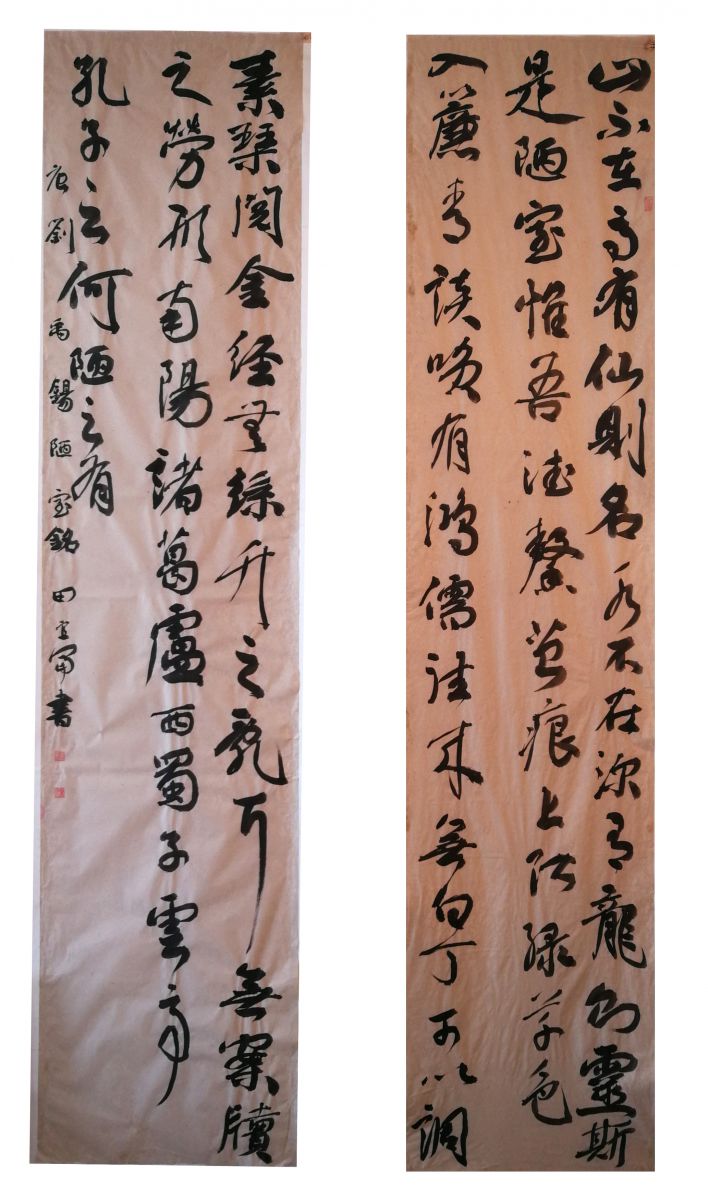 山不在高有仙則名水不在深有龍則靈斯
是陋室惟吾德馨苔痕上階綠草色
入簾青談笑有鴻儒往來無白丁可以調
素琴閱金經無絲竹之亂耳無案牘
之勞形南陽諸葛廬西蜀子雲亭
孔子云何陋之有
唐劉禹錫陋室銘 田富書